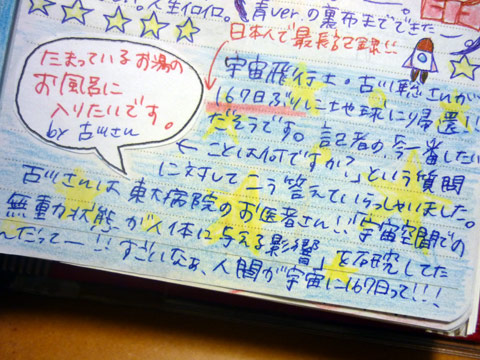 人生イロイロ。
青ver.の裏布まできたー
日本人で最長記録!!
たまっているお湯の
お風呂に
入りたいです。
by 古川さん
宇宙飛行士。古川聡さんが
167日ぶりに地球に帰還
だそうです。記者の、今一番したい
ことは何ですか?」という質問
に対してこう答えていらっしゃいました。
古川さんは東大病院のお医者さん!!「宇宙空間での
無重力状態が人体に与える影響」を研究してた
んだってー!!すごいなぁ、人間が宇宙に167日って!!!